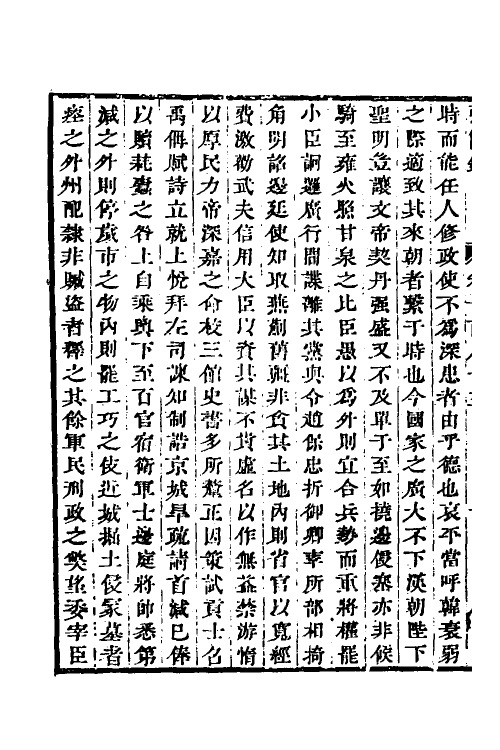 時而能任人修政使不為深患者由乎德也哀平當呼韓衰弱
之際適致其來朝者繫于時也今國家之廣大不下漢朝陛下
聖明豈讓文帝契丹强盛又不及單于至如撓邊侵塞亦非候
騎至雍火照甘泉之比臣愚以為外則宜合兵勢而重將權罷
小臣詗邏廣行間諜離其黨與令趙保忠折御卿率所部相掎
角明詔邊廷使知取燕薊舊疆非貪其土地內則省官以寬經
費激勸武夫信用大臣以資其謀不貴虛名以作無益禁游惰
以厚民力帝深嘉之命校三館史書多所釐正因策試貢士名
禹偁賦詩立就上悅拜左司諫知制誥京城旱疏請首減已俸
以贖耗蠹之咎上自乘輿下至百官宿衛軍士邊庭將帥悉第
減之外則停歲市之物內則罷工巧之使近城掘土侵冢墓者
瘞之外州配隸非贓盜者釋之其餘軍民刑政之弊望委宰臣